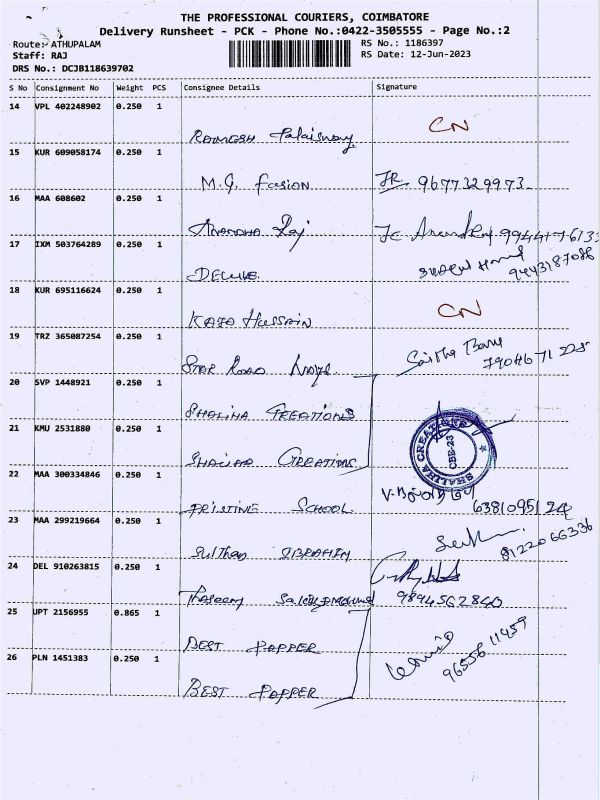 THE PROFESSIONAL COURIERS, COIMBATORE
Delivery Runsheet - PCK - Phone No.:0422-3505555 - Page No.:2
Route:- ATHUPALAM
RS No.: 1186397
Staff: RAJ
RS Date: 12-Jun-2023
DRS No.: DCJB118639702
S No Consignment No Weight PCS Consignee Details Signature
14 VPL 402248902 0.250 1
CN
15 KUR 609058174 0.250 1
M.G. Fasion 9677329973
16 MAA 608602 0.250 1
Anandha Raj
17 IXM 503764289 0.250 1
DELUXE 9443187086
18 KUR 695116624 0.250 1
CN
KAJA HUSSAIN
19 TRZ 365087254 0.250 1
STAR ROAD
7904671225
20 SVP 1448921 0.250 1
SHALIHA CREATIONS
21 KMU 2531880 0.250 1
SHALIHA CREATIONS
SHALIHA CREATIONS
CBE-23
22 MAA 300334846 0.250 1
PRISTINE SCHOOL
23 MAA 299219664 0.250 1
Sulthan IBRAHIM 8122066336
24 DEL 910263815 0.250 1
9894562840
25 UPT 2156955 0.865 1
BEST PAPPER
26 PLN 1451383 0.250 1
9655611459
BEST PAPPER